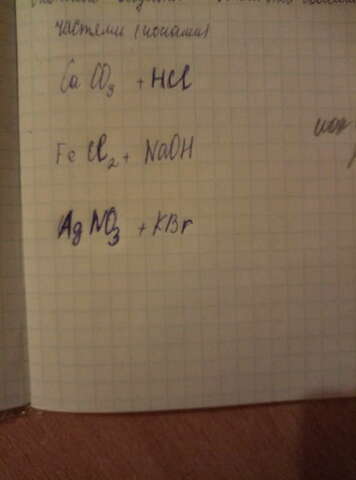 частями (ионами)
CaCO3 + HCl
FeCl2 + NaOH
AgNO3 + KBr